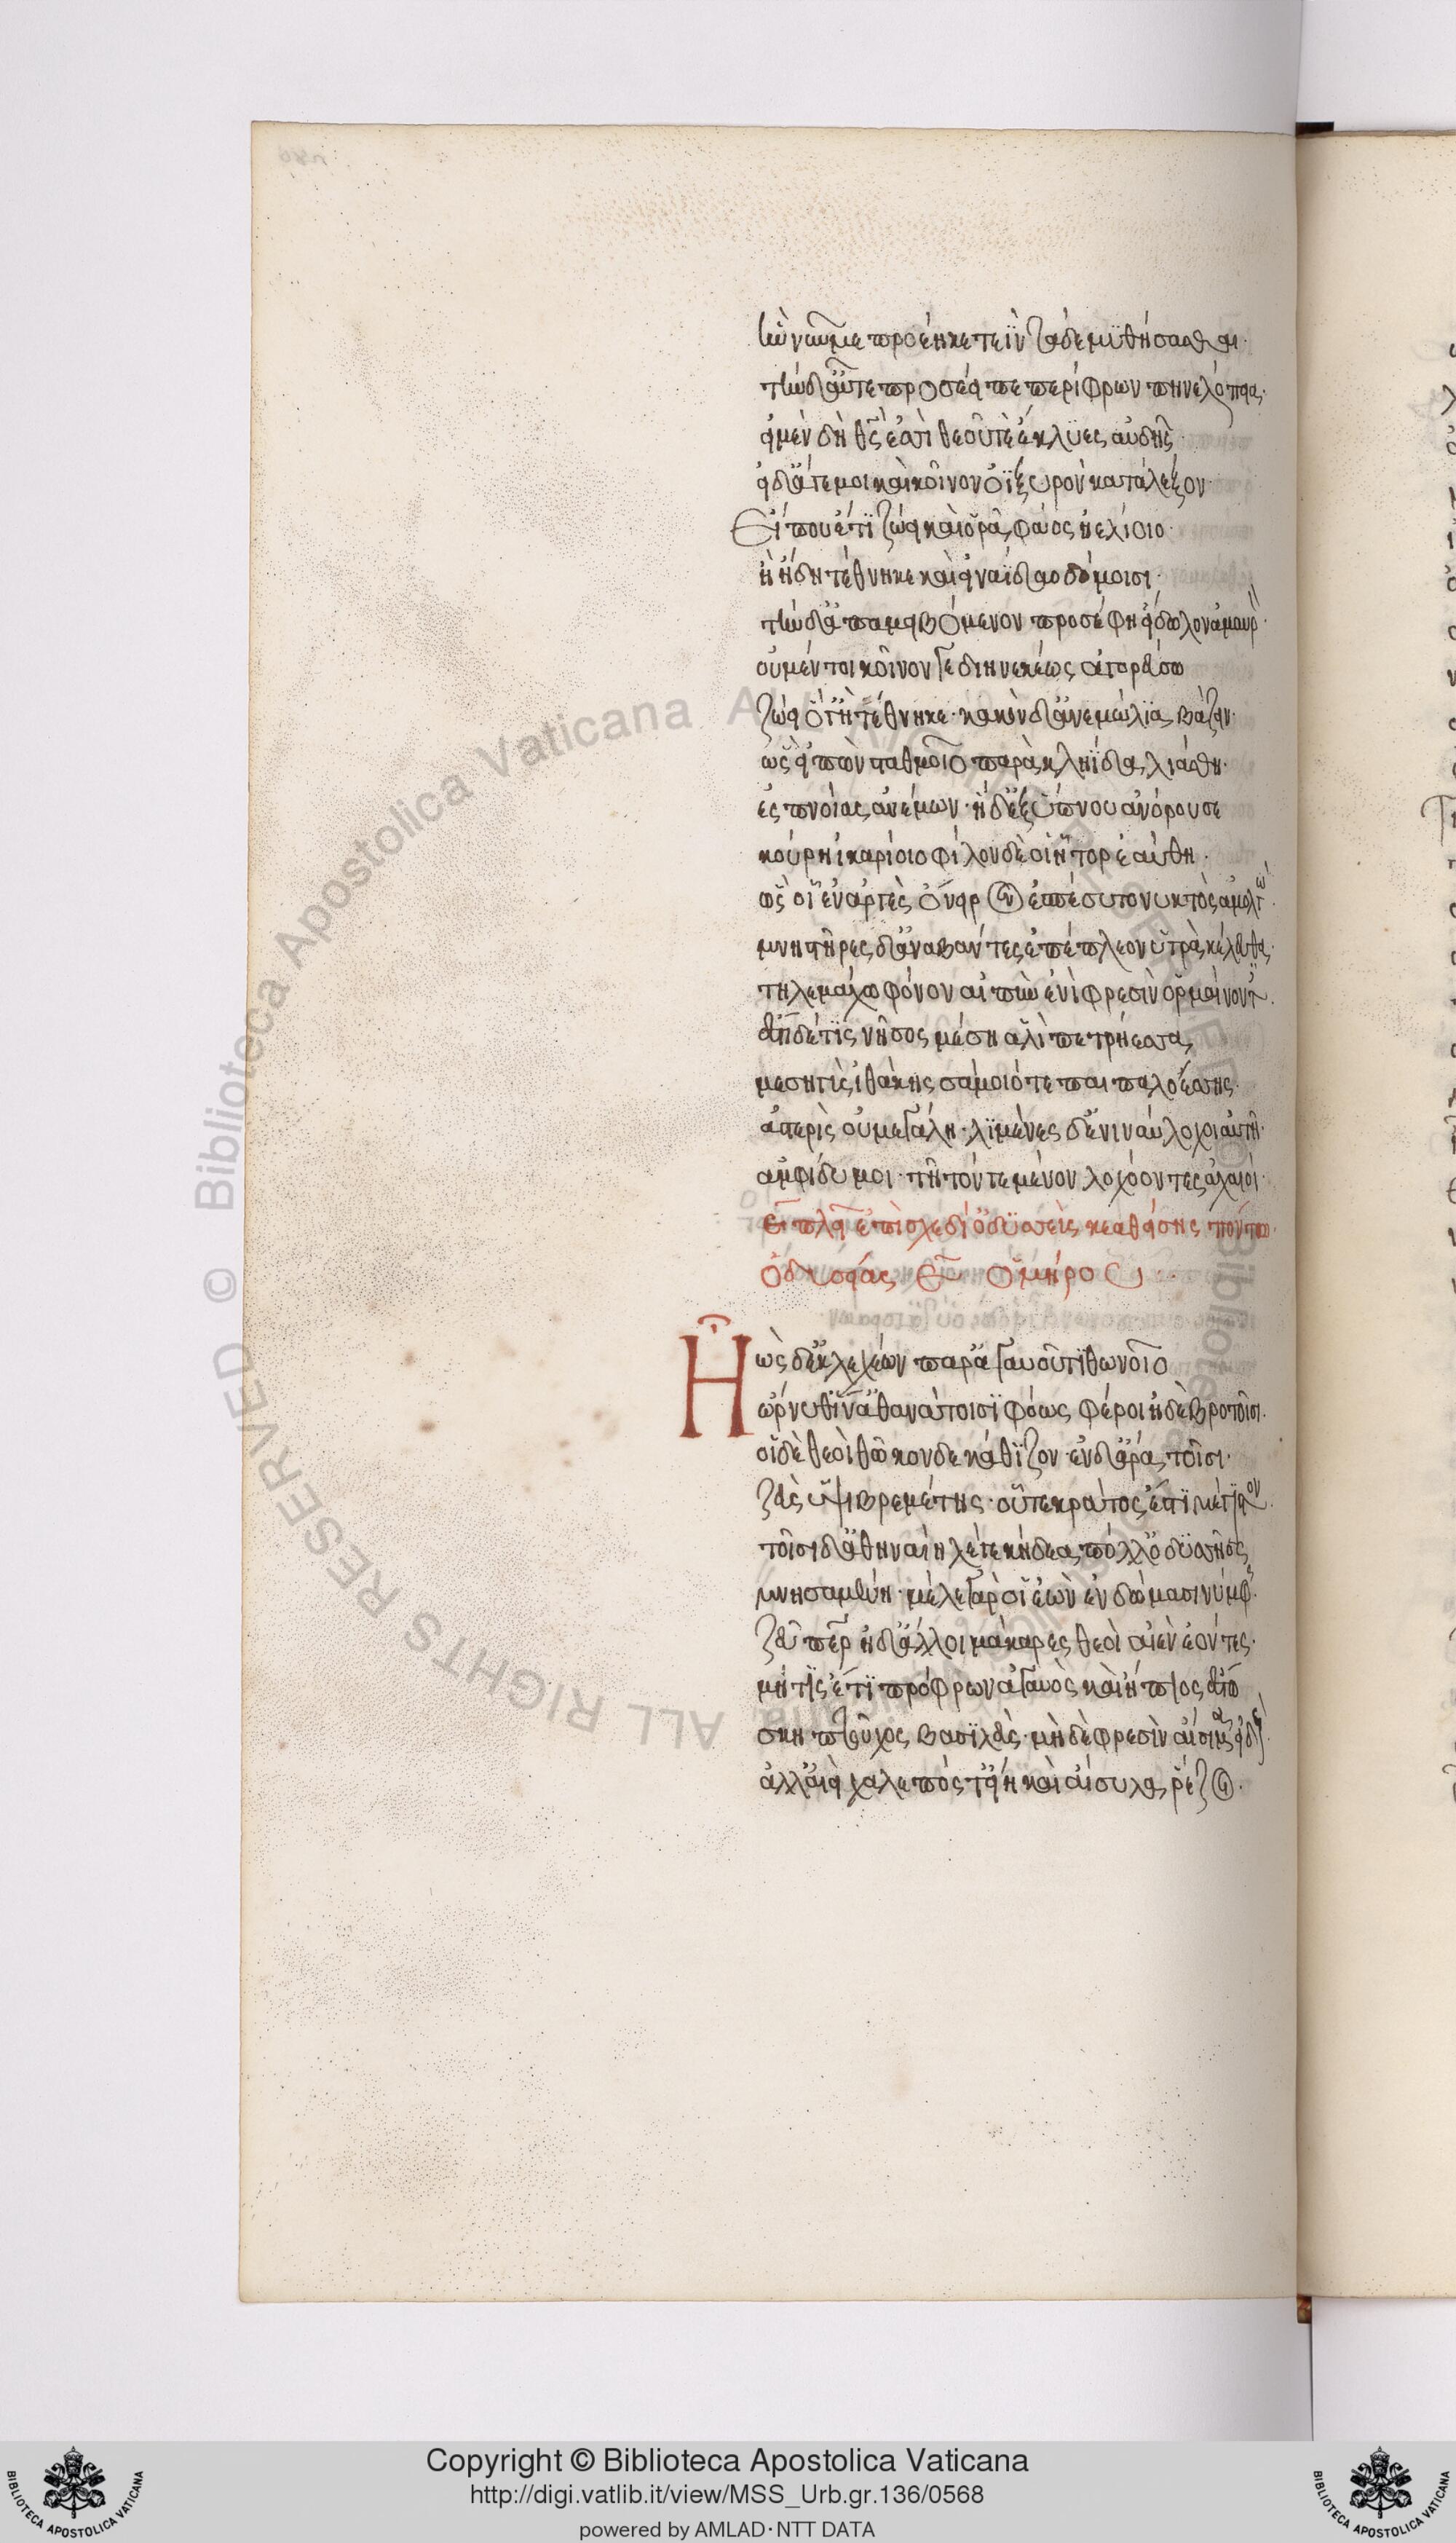 ἣ νῦν με προέηκε τεῒν τάδε μϋθήσασθαι·
τὴν δ' αὖτε προσέειπε περίφρων πηνελόπεια·
εἰ μὲν δὴ θεός ἐσσι θεοῦ τὲ ἔκλϋες αὐδῆς·
εἰ δ' ἄγε μοι καὶ κεῖνον ὀϊζυρὸν κατάλεξον·
Εἴ που ἔτϊ ζώει καὶ ὁρᾶ φάος ἠελίοιο·
ἢ ἤδη τέθνηκε καὶ εἰν ἀΐδαο δόμοισι·
τὴν δ' ἀπαμειβόμενον προσέφη εἴδωλον ἀμαυρὸν·
οὐ μέν τοι κεῖνον γε διηνεκέως ἀγορεύσω
ζώει ὅγ' ἢ τέθνηκε· κακὸν δ' ἀνεμώλϊα βάζειν·
ὣς εἰπὸν σταθμοῖο παρὰ κληῖδα λιάσθη·
ἐς πνοίας ἀνέμων· ἡ δ' ἐξ ὕπνου ἀνόρουσε
κούρη ἰκαρίοιο φίλον δὲ οἱ ἦτορ ἰάνθη·
ὥς οἱ ἐναργὲς ὄνειρον ἐπέσυτο νυκτὸς ἀμολγῶ·
μνηστῆρες δ' ἀναβάντες ἐπέπλεον ὑγρὰ κέλευθα·
τηλεμάχω φόνον αἰπὺν ἐνὶ φρεσὶν ὁρμαίνοντες·
ἔστι δέ τϊς νῆσος μέση ἁλὶ πετρήεσσα
μεσηγὺς ἰθάκης σάμοιό τε παιπαλοέσσης·
ἀστερὶς οὐ μεγάλη· λϊμένες δ' ἔνι ναύλοχοι αὐτῆ·
ἀμφίδυμοι· τῆ τόν γε μένον λοχόοντες ἀχαιοί·
Εἶ πλεῖ ἐπὶ σχεδίη ὀδϋσσεὺς κεασθείσης πόντω·
ὀδυσσείας Ε ὁμήρου
Ἠὼς δ' ἐκ λεχέων παρ' ἀγαυοῦ τϊθωνοῖο
ὤρνυθ' ἵν' ἀθανάτοισϊ φόως φέροι ἠδὲ βροτοῖσι·
οἱ δὲ θεοὶ θῶκον δε κάθϊζον· ἐν δ' ἄρα τοῖσι·
ζεὺς ὑψιβρεμέτης· οὗτε κράτος ἐστϊ μέγϊστον·
τοῖσι δ' ἀθηναίη λέγε κήδεα πόλλ' ὀδϋσῆος
μνησαμένη· μέλε γάρ οἱ ἐὼν ἐν δώμασι νύμφης·
ζεῦ πάτερ ἠδ' ἄλλοι μάκαρες θεοὶ αἰὲν ἐόντες·
μή τϊς ἔτϊ πρόφρων ἀγανὸς καὶ ἤπιος ἔστω
σκηπτοῦχος βασϊλεὺς· μὴ δὲ φρεσὶν αἴσιμα εἰδὼς
ἀλλ' αἰεὶ χαλεπός τ' εἴη καὶ αἴσυλα ῥέζοι·
Copyright © Biblioteca Apostolica Vaticana
http://digi.vatlib.it/view/MSS_Urb.gr.136/0568
powered by AMLAD·NTT DATA